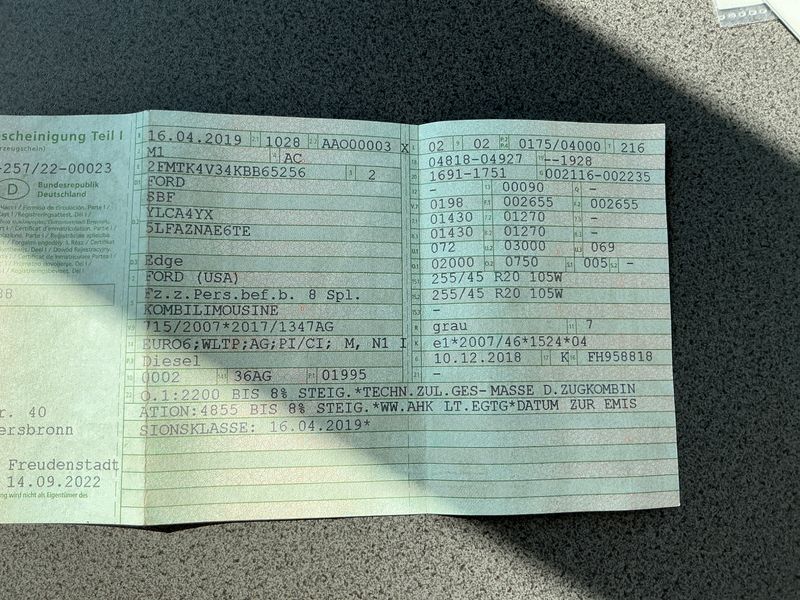 scheinigung Teil I
rzeugschein)
-257/22-00023
D
Bundesrepublik
Deutschland
88
r. 40
ersbronn
Freudenstadt
14.09.2022
ng wird nicht als Eigentümer des
16.04.2019 1028 AAO00003 X
M1 AC
2FMTK4V34KBB65256 2
FORD
SBF
YLCA4YX
5LFAZNAE6TE
Edge
FORD (USA)
Fz.z.Pers.bef.b. 8 Spl.
KOMBILIMOUSINE
715/2007*2017/1347AG
EURO6;WLTP;AG;PI/CI; M, N1 I
Diesel
0002 36AG 01995
02 02 0175/04000 216
04818-04927 --1928
1691-1751 002116-002235
- 00090 -
0198 002655 002655
01430 01270 -
01430 01270 -
072 03000 069
02000 0750 005 -
255/45 R20 105W
255/45 R20 105W
-
grau 7
e1*2007/46*1524*04
10.12.2018 K FH958818
-
O.1:2200 BIS 8% STEIG.*TECHN.ZUL.GES-MASSE D.ZUGKOMBIN
ATION:4855 BIS 8% STEIG.*WW.AHK LT.EGTG*DATUM ZUR EMIS
SIONSKLASSE: 16.04.2019*